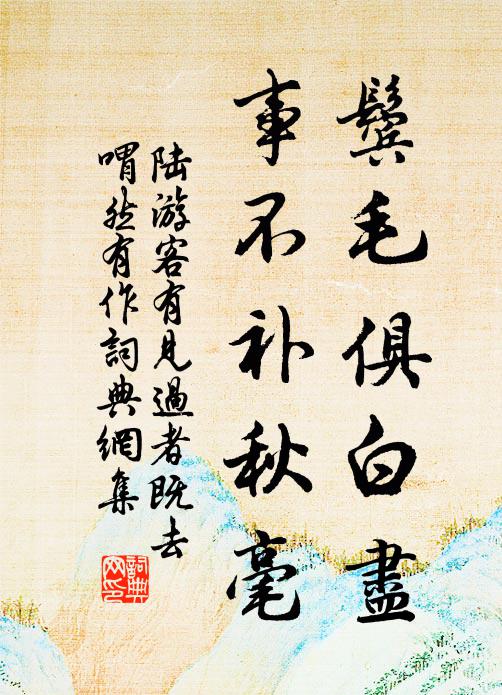 鬓毛俱白盡
事不补秋毫
陆游客有見過者既去
喟然有作詞典網集
詞典
网印